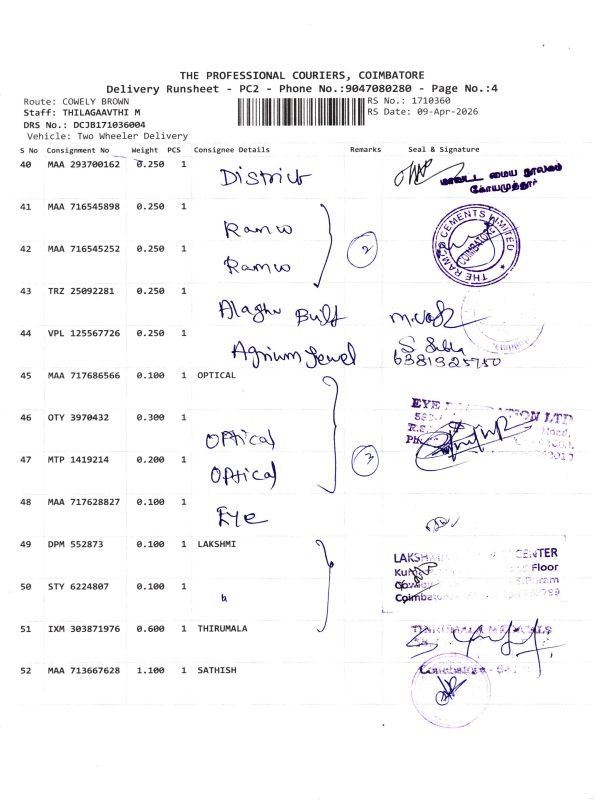 THE PROFESSIONAL COURIERS, COIMBATORE
Delivery Runsheet - PC2 - Phone No.:9047080280 - Page No.:4
Route: COWELY BROWN
RS No.: 1710360
Staff: THILAGAAVTHI M
RS Date: 09-Apr-2026
DRS No.: DCJB171036004
Vehicle: Two Wheeler Delivery
S No Consignment No Weight PCS Consignee Details Remarks Seal & Signature
40 MAA 293700162 0.250 1 District
மாவட்ட மைய நூலகம்
கோயமுத்தூர்
41 MAA 716545898 0.250 1 Ramco
42 MAA 716545252 0.250 1 Ramco
2
THE RAMCO CEMENTS LIMITED
COIMBATORE
43 TRZ 25092281 0.250 1 Alaghu Built
44 VPL 125567726 0.250 1 Agnium Jewel
6381325750
45 MAA 717686566 0.100 1 OPTICAL
46 OTY 3970432 0.300 1 Optical
47 MTP 1419214 0.200 1 Optical
3
EYE LTD
48 MAA 717628827 0.100 1 Eye
49 DPM 552873 0.100 1 LAKSHMI
CENTER
Floor
50 STY 6224807 0.100 1 "
51 IXM 303871976 0.600 1 THIRUMALA
52 MAA 713667628 1.100 1 SATHISH